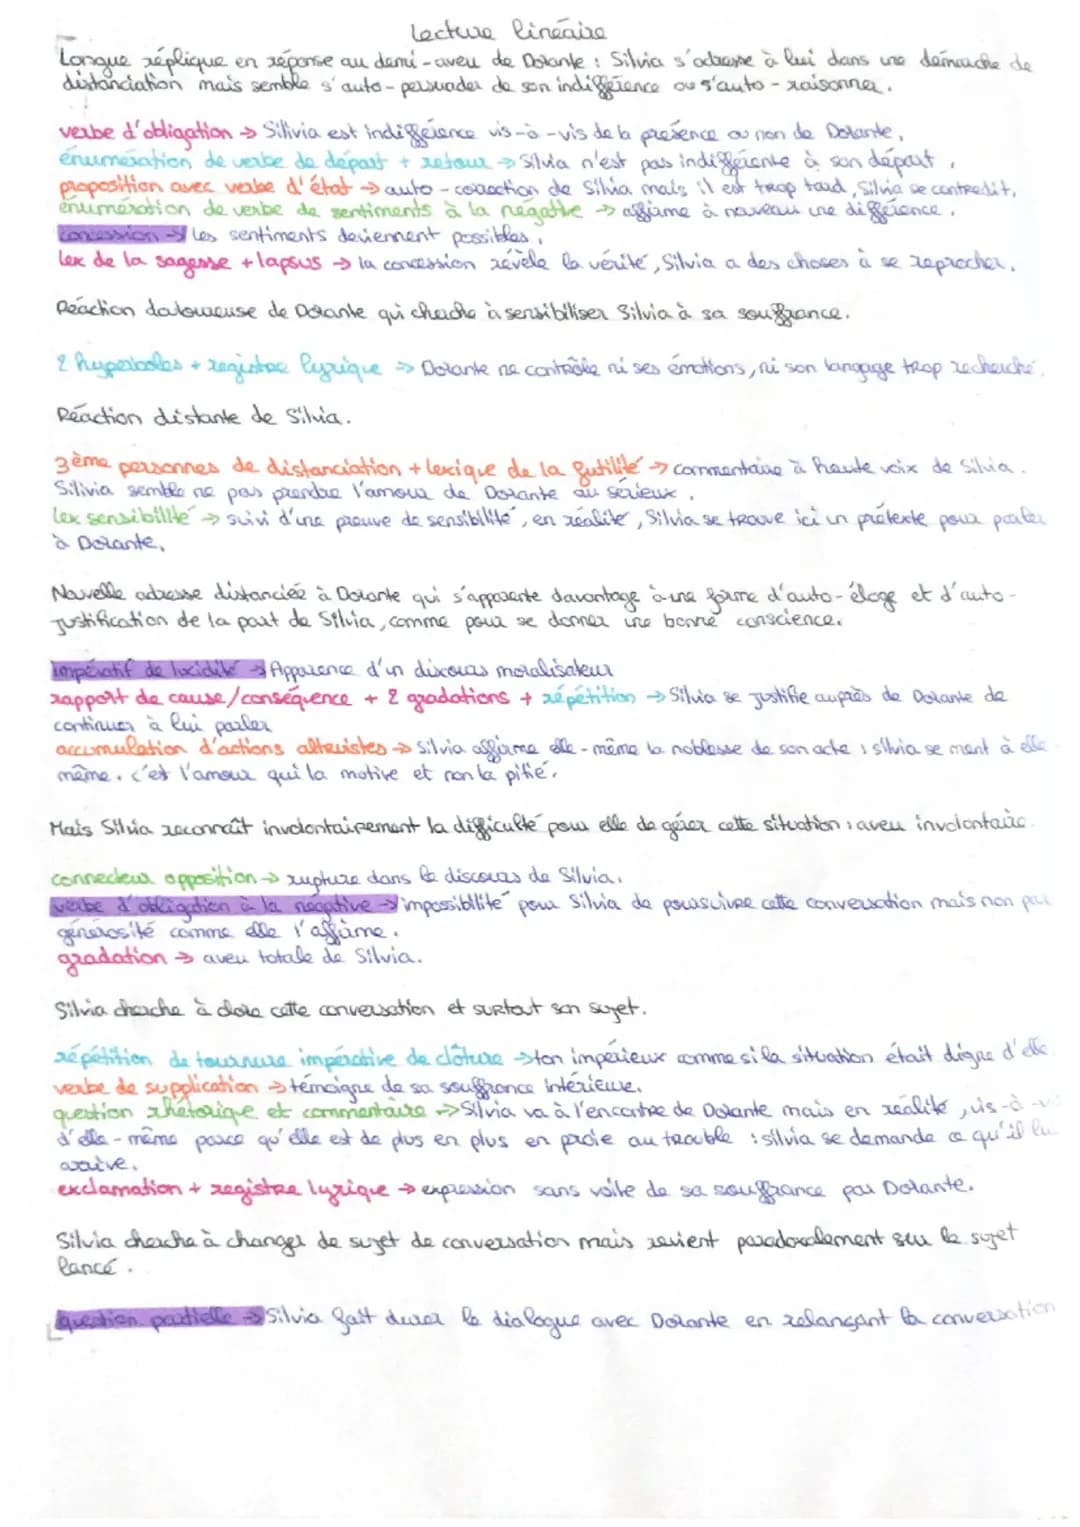 Lecture linéaire
Longue réplique en réponse au demi-aveu de Dorante : Silvia s'adresse à lui dans une démarche de
distanciation mais semble s'auto-persuader de son indifférence ou s'auto-raisonner.
verbe d'obligation → Silivia est indifférence vis-à-vis de la présence ou non de Dorante.
énumération de verbe de départ + retour → Silvia n'est pas indifférente à son départ.
proposition avec verbe d'état → auto-correction de Silvia mais il est trop tard, Silvia se contredit.
énumération de verbe de sentiments à la négative → affirme à nouveau une différence.
concession → les sentiments deviennent possibles.
lex de la sagesse + lapsus → la concession révèle la vérité, Silvia a des choses à se reprocher.
Réaction douloureuse de Dorante qui cherche à sensibiliser Silvia à sa souffrance.
2 hyperboles + registre lyrique → Dorante ne contrôle ni ses émotions, ni son langage trop recherché.
Réaction distante de Silvia.
3ème personnes de distanciation + lexique de la futilité → commentaire à haute voix de Silvia.
Silivia semble ne pas prendre l'amour de Dorante au sérieux.
lex sensibilité → suivi d'une preuve de sensibilité, en réalité, Silvia se trouve ici un prétexte pour parler
à Dorante.
Nouvelle adresse distanciée à Dorante qui s'apparente davantage à une forme d'auto-éloge et d'auto-
justification de la part de Silvia, comme pour se donner une bonne conscience.
impératif de lucidité → Apparence d'un discours moralisateur
rapport de cause/conséquence + 2 gradations + répétition → Silvia se justifie auprès de Dorante de
continuer à lui parler
accumulation d'actions altruistes → Silvia affirme elle-même la noblesse de son acte : silvia se ment à elle
même. c'est l'amour qui la motive et non la pitié.
Mais Silvia reconnaît involontairement la difficulté pour elle de gérer cette situation : aveu involontaire.
connecteur opposition → rupture dans le discours de Silvia.
verbe d'obligation à la négative → impossibilité pour Silvia de poursuivre cette conversation mais non par
générosité comme elle l'affirme.
gradation → aveu totale de Silvia.
Silvia cherche à clore cette conversation et surtout son sujet.
répétition de tournure impérative de clôture → ton impérieux comme si la situation était digne d'elle
verbe de supplication → témoigne de sa souffrance intérieure.
question rhétorique et commentaire → Silvia va à l'encontre de Dorante mais en réalité, vis-à-vis
d'elle-même parce qu'elle est de plus en plus en proie au trouble : silvia se demande ce qu'il lui
arrive.
exclamation + registre lyrique → expression sans voile de sa souffrance par Dorante.
Silvia cherche à changer de sujet de conversation mais revient paradoxalement sur le sujet
lancé.
question partielle → Silvia fait durer le dialogue avec Dorante en relançant la conversation